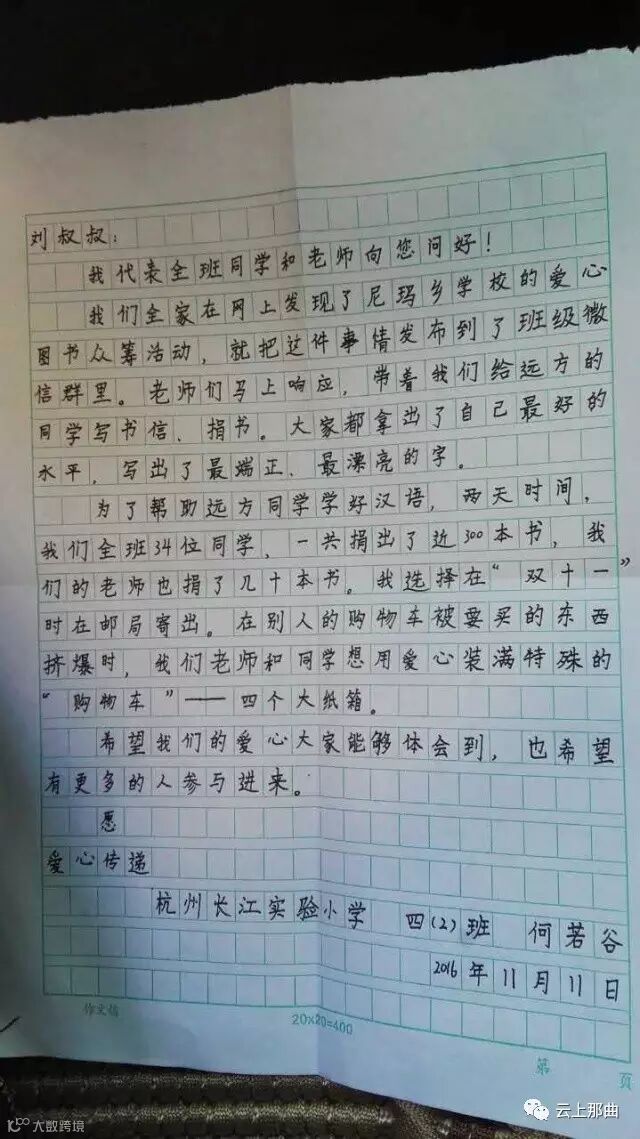 刘叔叔：
我代表全班同学和老师向您问好！
我们全家在网上发现了尼玛乡学校的爱心
图书众筹活动，就把这件事情发布到了班级微
信群里。老师们马上响应，带着我们给远方的
同学写书信、捐书。大家都拿出了自己最好的
水平，写出了最端正、最漂亮的字。
为了帮助远方同学学好汉语，两天时间，
我们全班34位同学，一共捐出了近300本书，我
们的老师也捐了几十本书。我选择在“双十一”
时在邮局寄出。在别人的购物车被要买的东西
挤爆时，我们老师和同学想用爱心装满特殊的
“购物车”——四个大纸箱。
希望我们的爱心大家能够体会到，也希望
有更多的人参与进来。
愿
爱心传递
杭州长江实验小学 四(2)班 何若谷
2016年11月11日
作文稿
20×20=400
第 页
大数跨境
云上那曲